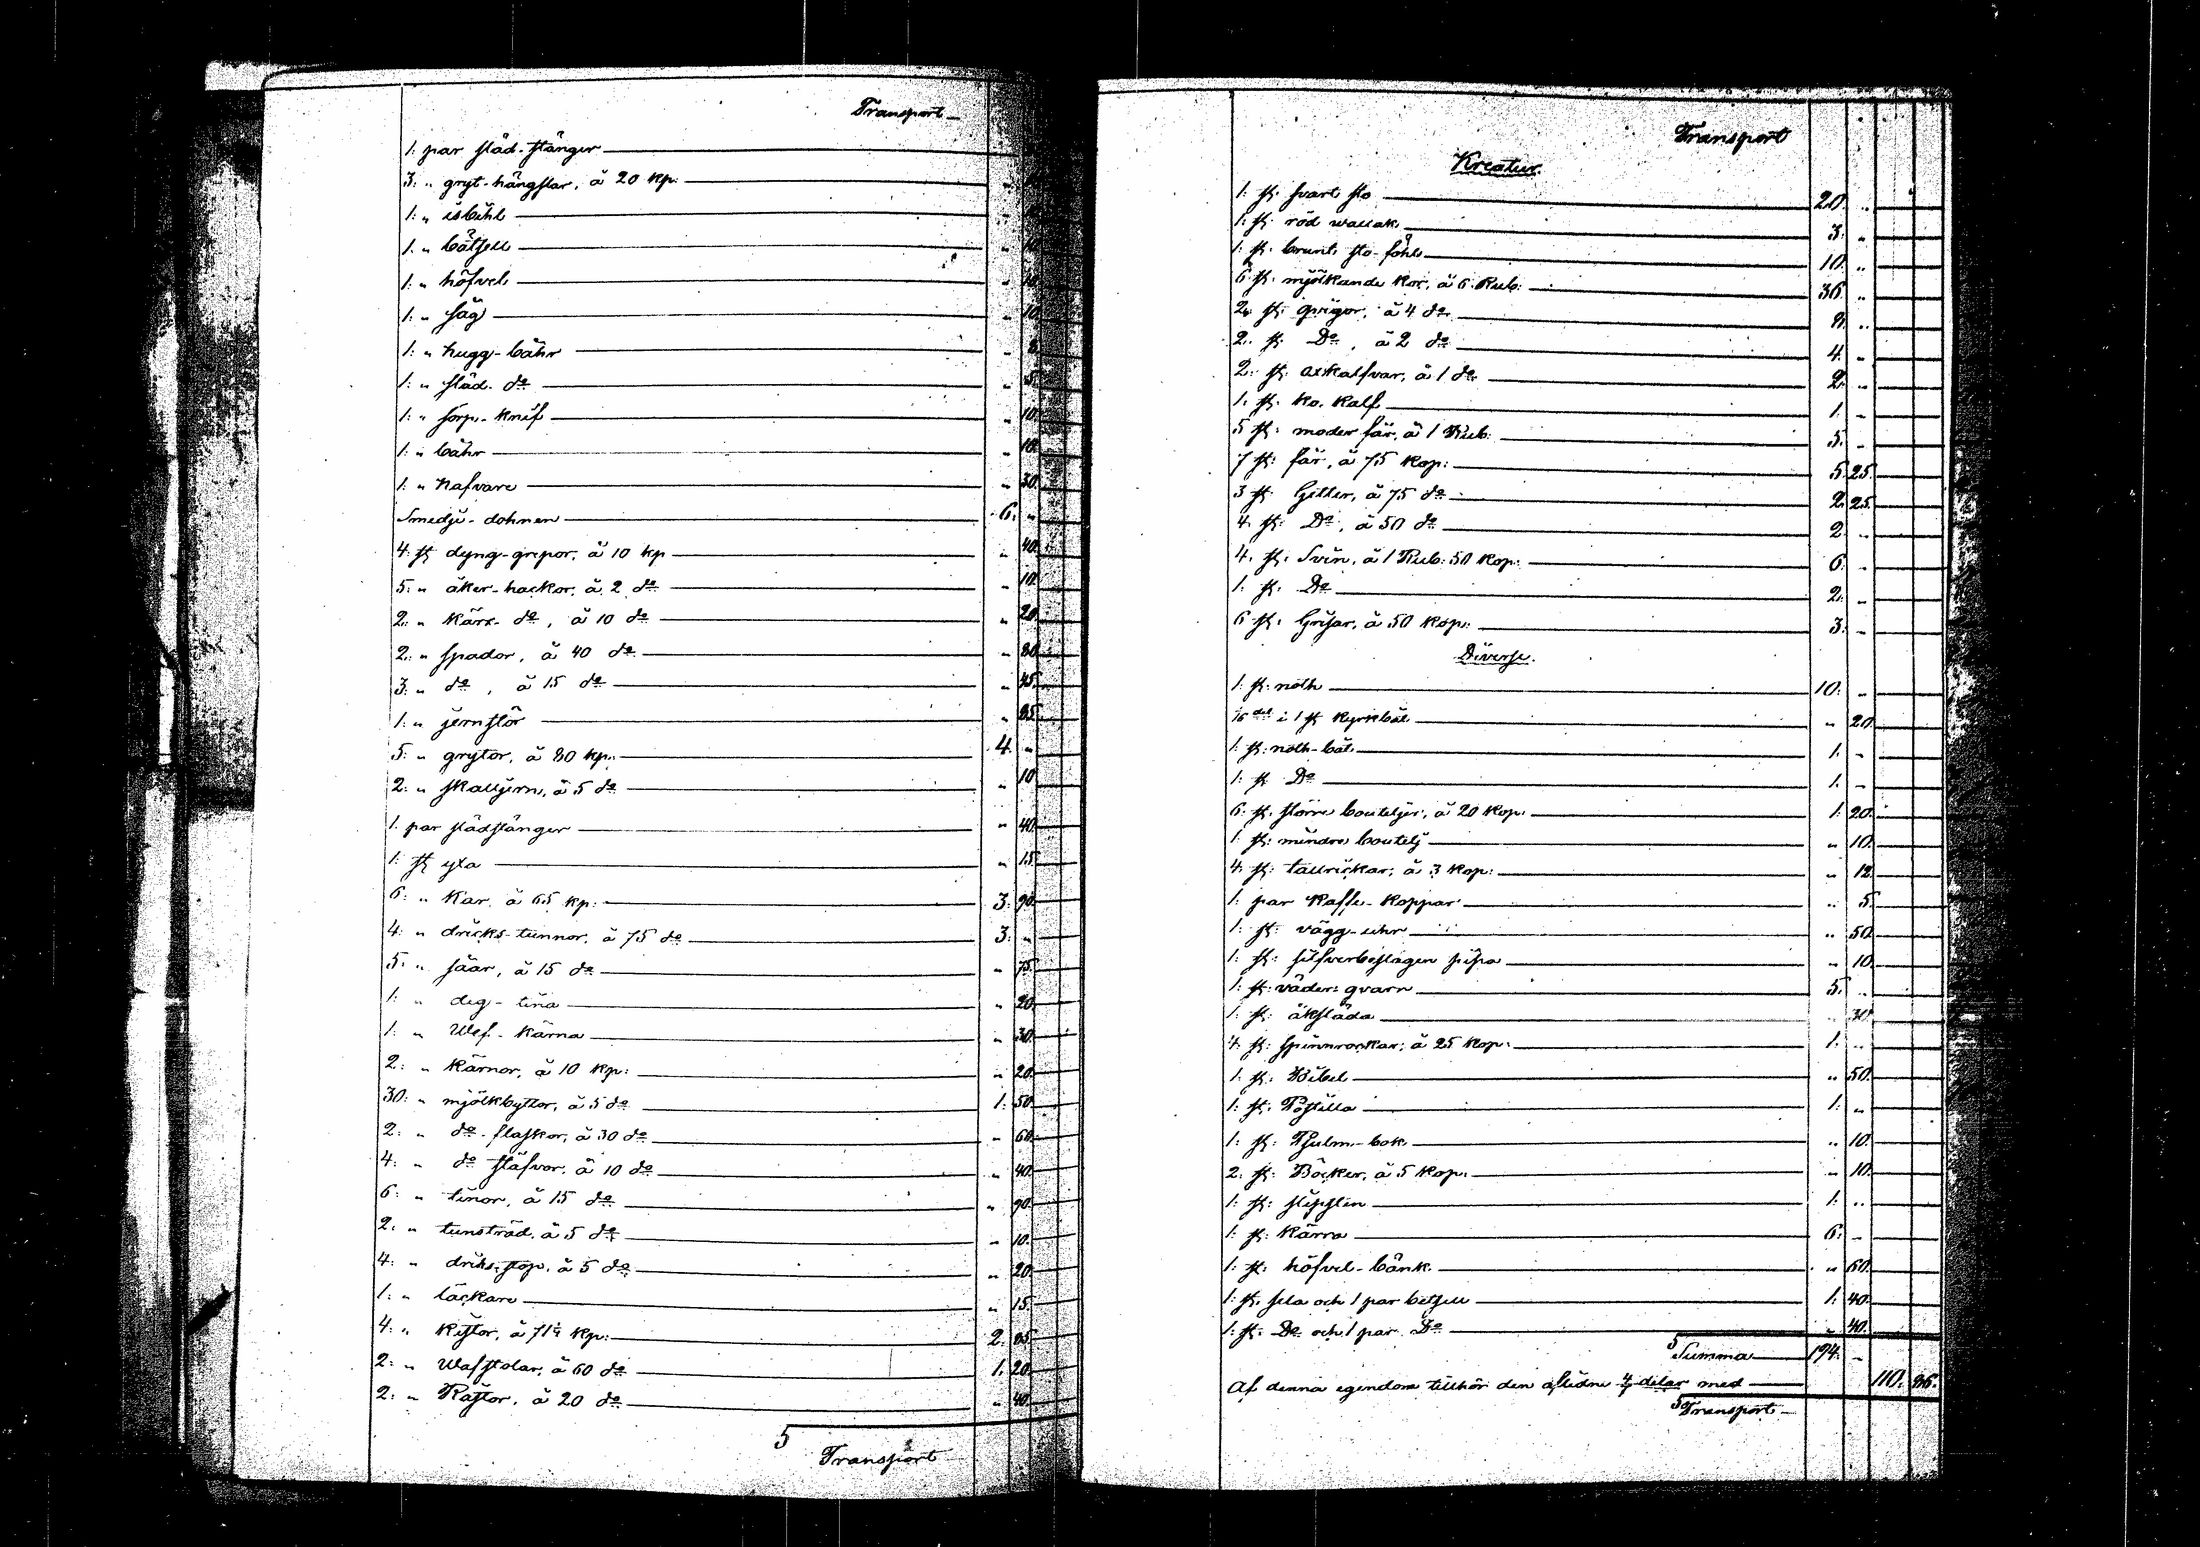 Transport
1: par städ-stänger
3: " gryt-hängslar, à 20 kp:
1: " isbihl
1: " båtsell 10
1: " höfvel 10
1: " såg " 10
1: " hugg-båhr " 8
1: " städ. do " 5
1: " sörp-knif " 10
1: " båhr " 10
1: " nafvare " 30
Smedje-dohnen 6. "
4: st dyng-grepor, à 10 kp " 40
5: " åker-hackor, à 2 do " 10
2: " kärr- do, à 10 do " 20
2: " spador, à 40 do " 80
3: " do, à 15 do " 45
1: " jernstör " 85
5: " grytor, à 80 kp: 4. "
2: " skalljern, à 5 do " 10
1. par städstänger " 40
1: st yxa " 15
6: " Kar, à 65 kp: 3. 90
4: " dricks-tunnor, à 75 do 3. "
5: " såar, à 15 do " 75
1: " deg-tina " 20
1: " Wef-kärna " 30
2: " kärnor, à 10 kp: " 20
30: " mjölkbyttor, à 5 do 1. 50
2: " do-flaskor, à 30 do " 60
4: " do stäfvor, à 10 do " 40
6: " tinor, à 15 do " 90
2: " tunsträd, à 5 do " 10
4: " driks-stop, à 5 do " 20
1: " läckare " 15
4: " Kistor, à 71¼ kp: 2. 85
2: " Wafstolar, à 60 do 1. 20
2: " Rastor, à 20 do " 40
S Transport
Transport
Kreatur.
1: st. svart sto 20 "
1: st: röd wallak 3. "
1: st. brunt sto-föhl 10. "
6 st. mjölkande kor, à 6 Rub: 36 "
2. st: qvigor, à 4 do 8. "
2. st Do, à 2 do 4. "
2: st: oxkalfvar, à 1 do 2. "
1. st. ko. kalf 1. "
5 st: moder får, à 1 Rub: 5. "
7 st: får, à 75 kop: 5. 25
3 st: Getter, à 75 do 2. 25
4. st: Do, à 50 do 2 "
4. st. Svin, à 1 Rub: 50 kop: 6. "
1. st. Do 2. "
6 st. Grisar, à 50 kop: 3. "
Diverse.
1: st: noth 10. "
1/6 del i 1 st kyrkbåt " 20
1: st: noth-båt 1. "
1: st Do 1. "
6: st. större bouteljer, à 20 kop: 1. 20
1: st: mindre boutelj " 10
4: st: tallrickar, à 3 kop: " 12
1: par kaffe-koppar " 5
1: st: vägg-uhr " 50
1: st: silfverbeslagen pipa " 10
1: st: väder: qvarn 5. "
1: st: åkslåda " 30
4: st: spinnrockar, à 25 kop: 1. "
1: st: Bibel " 50
1: st. Postilla 1. "
1: st: Psalm-bok " 10
2: st: Böcker, à 5 kop: " 10
1: st: slipsten 1. "
1: st: kärra 6. "
1: st: höfvel-bänk " 60
1: st. sela och 1 par betsell 1. 40
1: st: Do och 1 par Do " 40
S Summa 194. "
Af denna egendom tillhör den aflidne 4/7 delar med 110. 86.
S Transport